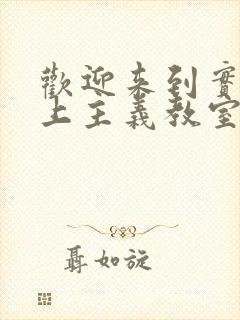 歡迎来到實
上主義教室
聶如旋